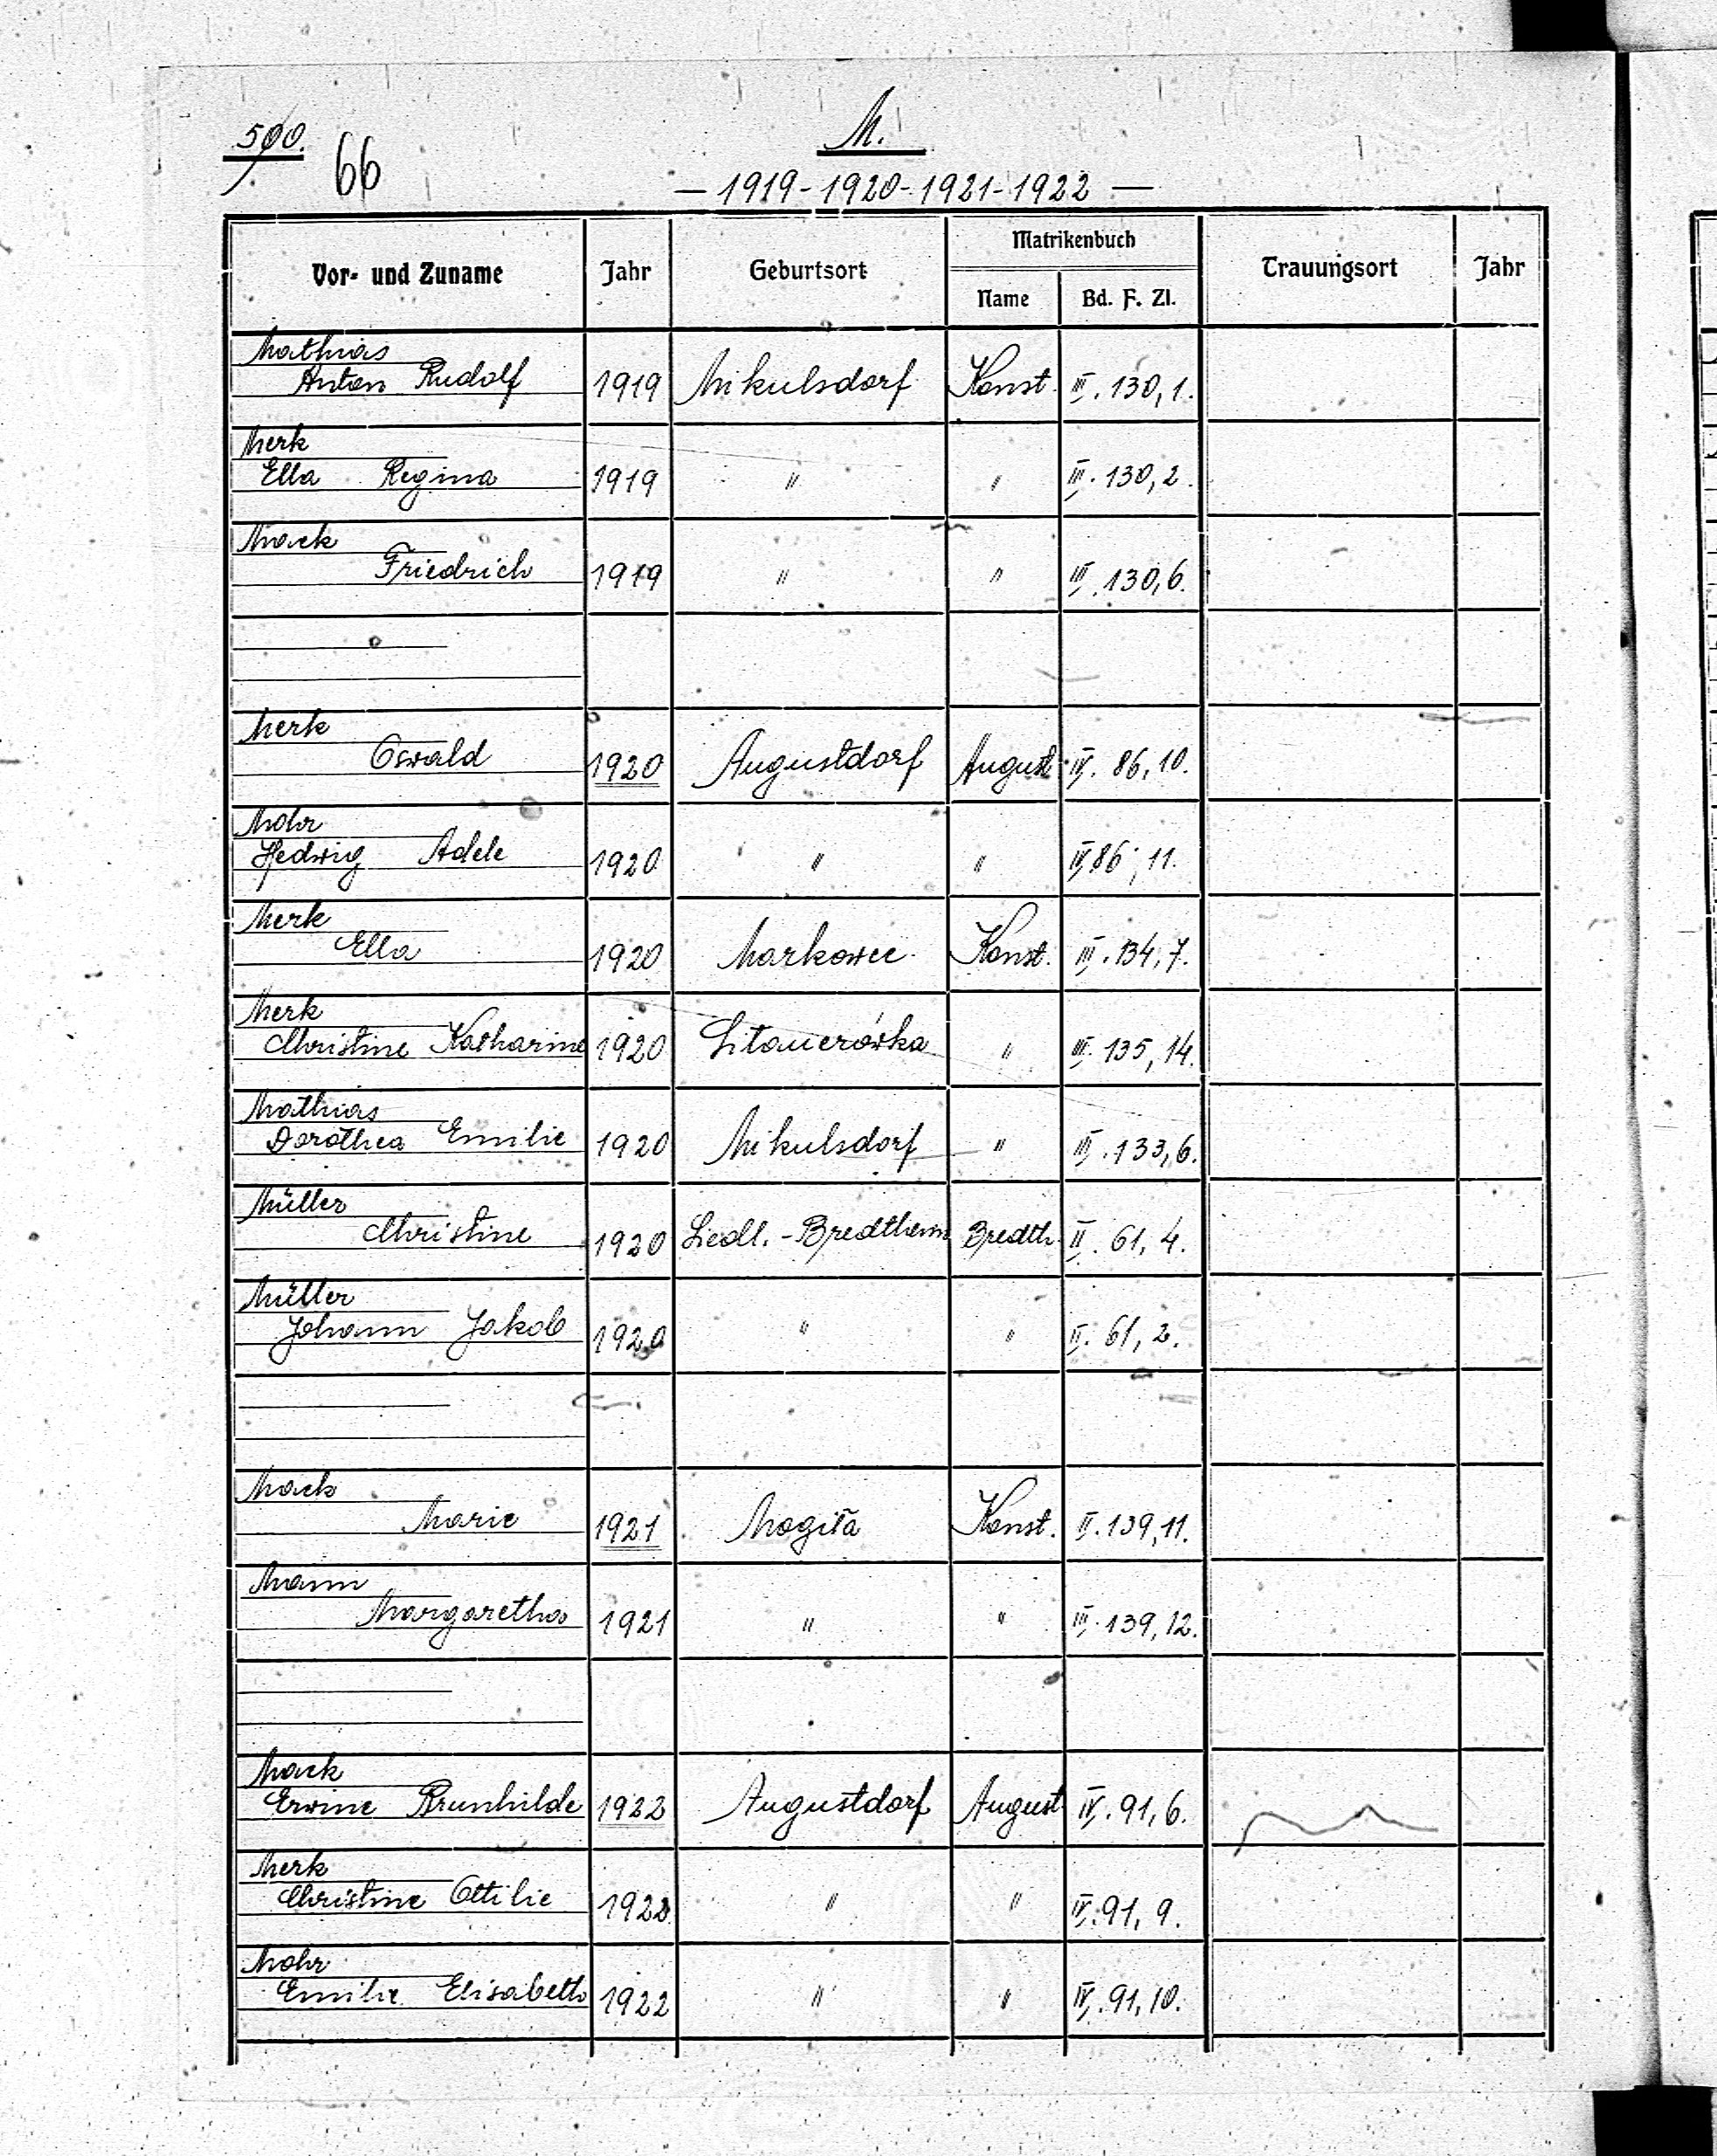 500.
66
M.
— 1919-1920-1921-1922 —
Vor- und Zuname Jahr Geburtsort Matrikenbuch Trauungsort Jahr
Name Bd. F. Zl.
Mathias
Anton Rudolf 1919 Mikulsdorf Konst. III. 130,1.
Merk
Ella Regina 1919 " " III. 130,2.
Mack
Friedrich 1919 " " III. 130,6.
Merk
Oswald 1920 Augustdorf August. IV. 86,10.
Mohr
Hedwig Adele 1920 " " IV, 86, 11.
Merk
Ella 1920 Markowce Konst. III. 134,7.
Merk
Christine Katharine 1920 " III. 135,14.
Mathias
Dorothea Emilie 1920 Mikulsdorf " III. 133,6.
Müller
Christine 1920 Siedl.-Bredtheim Bredth. II. 61, 4.
Müller
Johann Jakob 1920 " " II. 61, 2.
Mack
Marie 1921 Mogiła Konst. II. 139,11.
Mann
Margaretha 1921 " " III. 139,12.
Mack
Erwine Brunhilde 1922 Augustdorf August IV. 91,6.
Merk
Christine Ottilie 1922 " " IV. 91, 9.
Mohr
Emilie Elisabeth 1922 " " IV. 91,10.